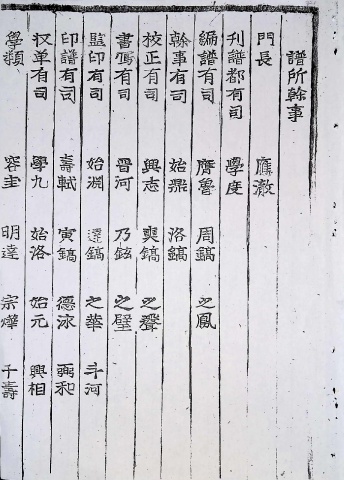 譜所幹事
門長 鷹澈
刊譜都有司 學度
編譜有司 膺魯 周鎬 之鳳
幹事有司 始鼎 洛鎬
校正有司 興志 奭鎬 之聲
書寫有司 晋河 乃鉉 之璧
監印有司 始淵 達鎬 之華 斗河
印譜有司 壽軾 寅鎬 德泳 弼和
収单有司 學九 始洛 始元 興相
學類 容圭 明達 宗燁 千壽